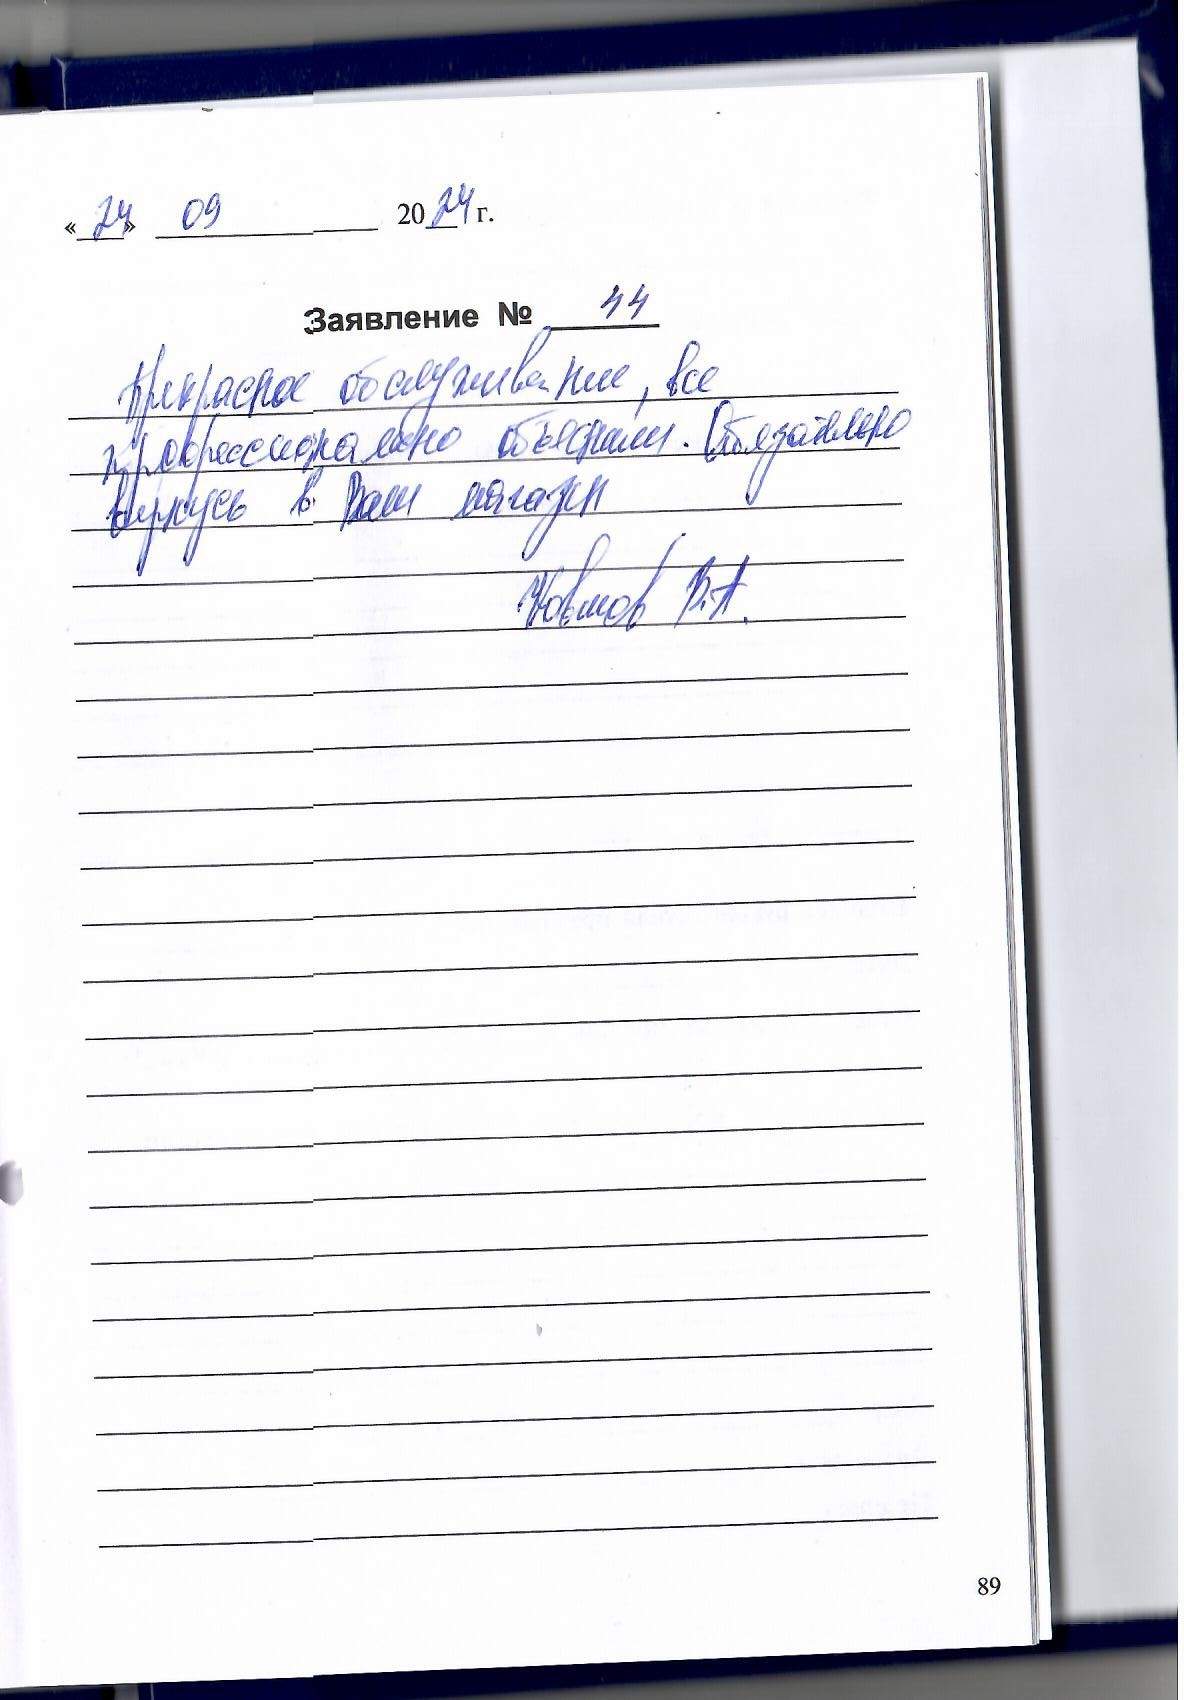 «24» 09 2024 г.
Заявление № 44
Прекрасное обслуживание, все
профессионально объяснили. Обязательно
вернусь в Ваш магазин
В.А.
89